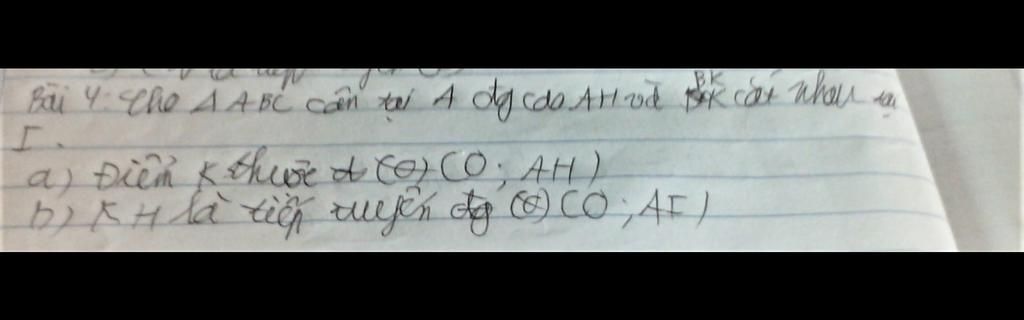 Bài 4: Cho Δ ABC cân tại A đg cao AH và BK cắt nhau tại
I.
a) Điểm K thuộc (O; AH)
b) KH là tiếp tuyến đg (O; AI)